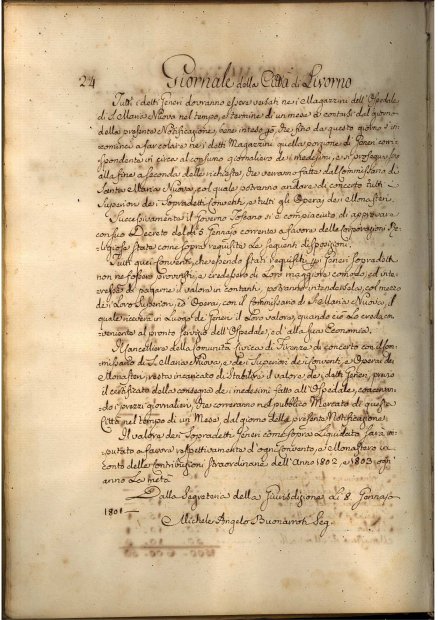 24 Giornale della Città di Livorno
Tutti i detti Generi dovranno essere versati nei Magazzini dell'Ospedale
di S. Maria Nuova nel tempo, e termine di un mese da contarsi dal giorno
della presente Notificazione, bene inteso però, che fino da questo giorno s'in-
cominci a far colare nei detti Magazzini quella porzione di Generi corri-
spondente in circa al consumo giornaliero dei medesimi, e si prosegua fino
alla fine a seconda delle richieste, che verranno fatte dal Commissario di
Santa Maria Nuova, col quale potranno andare di concerto tutti i
Superiori dei Sopradetti Conventi, e tutti gli Operaj dei Monasteri.
Successivamente il Governo Toscano si è compiaciuto di approvare
con suo Decreto del dì 5 Gennajo corrente a favore delle Corporazioni Re-
ligiose state come sopra requisite le seguenti disposizioni:
Tutti quei Conventi, che essendo stati requisiti per Generi sopradetti
non ne fossero provvisti, o credessero di loro maggiore comodo, ed inte-
resse di pagarne il valore in contanti, potranno intendersela, col mezzo
dei Loro Superiori, o Operai, con il Commissario di S. Maria Nuova, il
quale riceverà in Luogo de' Generi il loro valore, quando ciò lo creda con-
veniente al pronto servizio dell'Ospedale, ed alla sua Economia.
Il Cancelliere della Comunità Civica di Firenze di concerto con il Com-
missario di S. Maria Nuova, e dei Superiori dei Conventi, e Operai dei
Monasteri, resta incaricato di stabilire il valore dei detti Generi, previo
il certificato della consegna dei medesimi fatto all'Ospedale,
i prezzi giornalieri, che correranno nel pubblico Mercato di questa
Città nel tempo di un Mese, dal giorno della presente Notificazione.
Il valore dei Sopradetti Generi come sopra Liquidato sarà im-
putato a favore respettivamente d'ogni Convento, e Monastero in
conto delle Contribuzioni straordinarie dell'Anno 1802, e 1803 ogni
anno la metà
Dalla Segreteria della Giurisdizione Li 8 Gennajo
1801
Michele Angelo Buonarroti Seg.